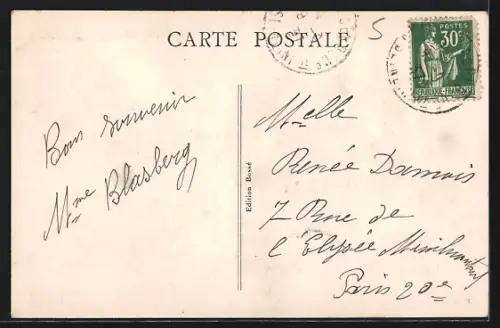 CARTE POSTALE
5
POSTES
30c
REPUBLIQUE-FRANÇAISE
Bon souvenir
Mme Blasberg
Edition Bossé
Melle
Renée Damois
7 Rue de
l'Elysée Ménilmontant
Paris 20e